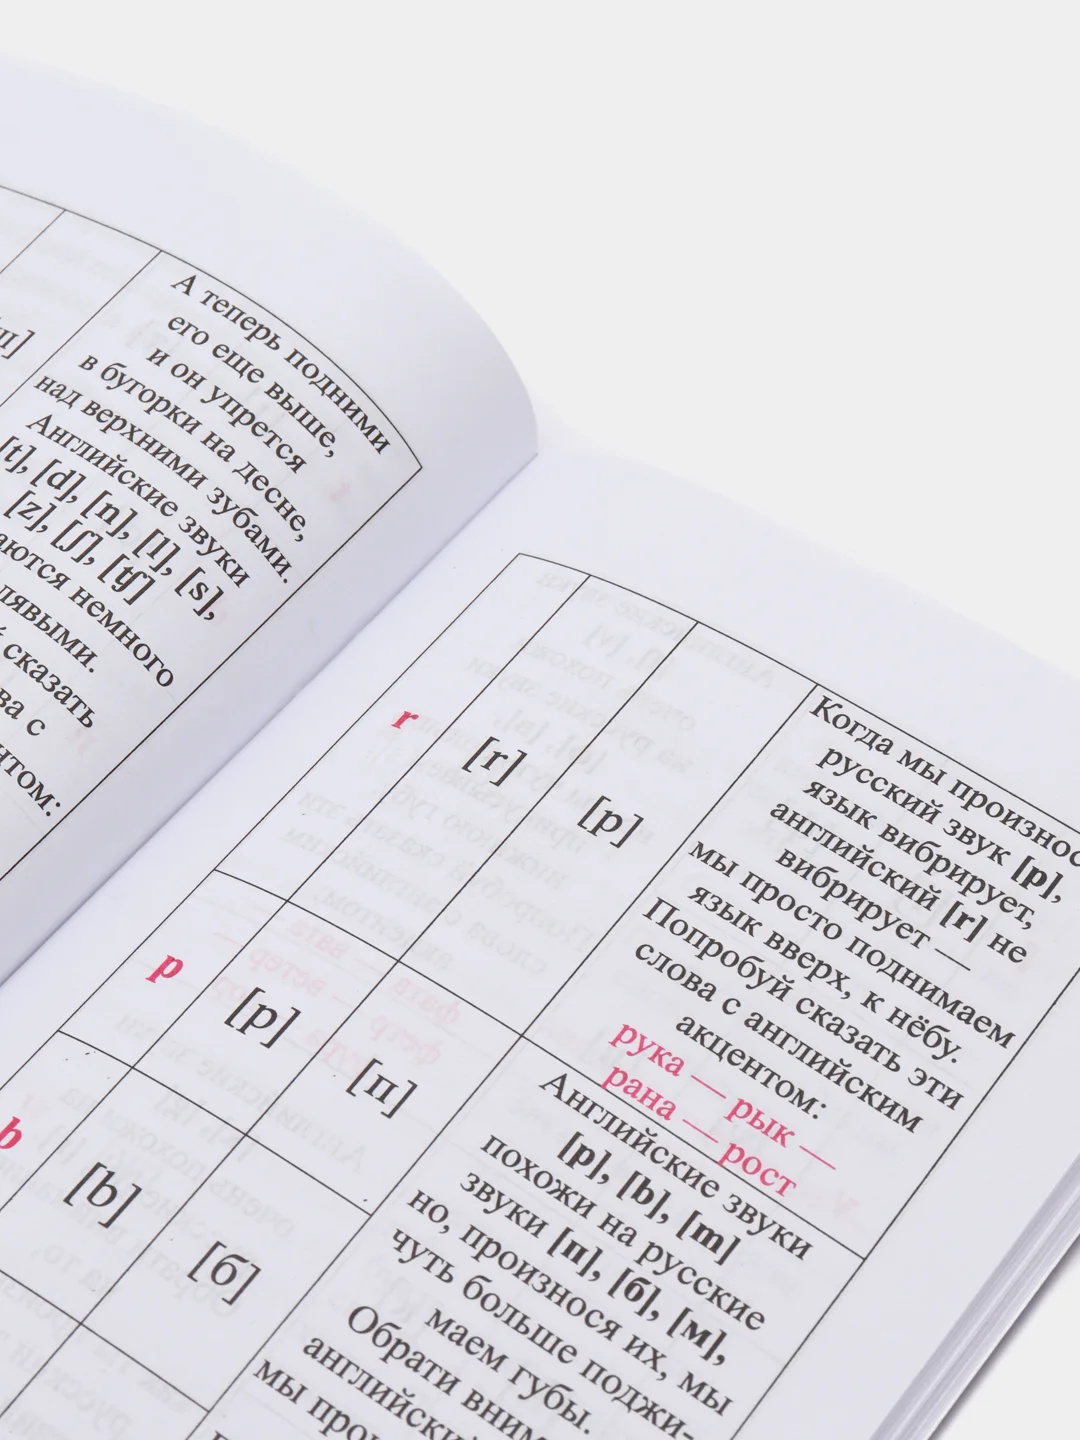 А теперь подними
его еще выше,
и он упрется
в бугорки на десне,
над верхними зубами.
Английские звуки
[t], [d], [n], [l], [s],
[z], [ʃ], [ʧ]
немного
сказать
с
r
[r]
[р]
Когда мы
русский звук [р],
язык вибрирует,
английский [r] не
вибрирует —
мы просто поднимаем
язык вверх, к нёбу.
Попробуй сказать эти
слова с английским
акцентом:
рука — рык —
рана — рост
p
[p]
[п]
Английские звуки
[p], [b], [m]
похожи на русские
звуки [п], [б], [м],
но, произнося их, мы
чуть больше поджи-
маем губы.
b
[b]
[б]
Обрати
мы